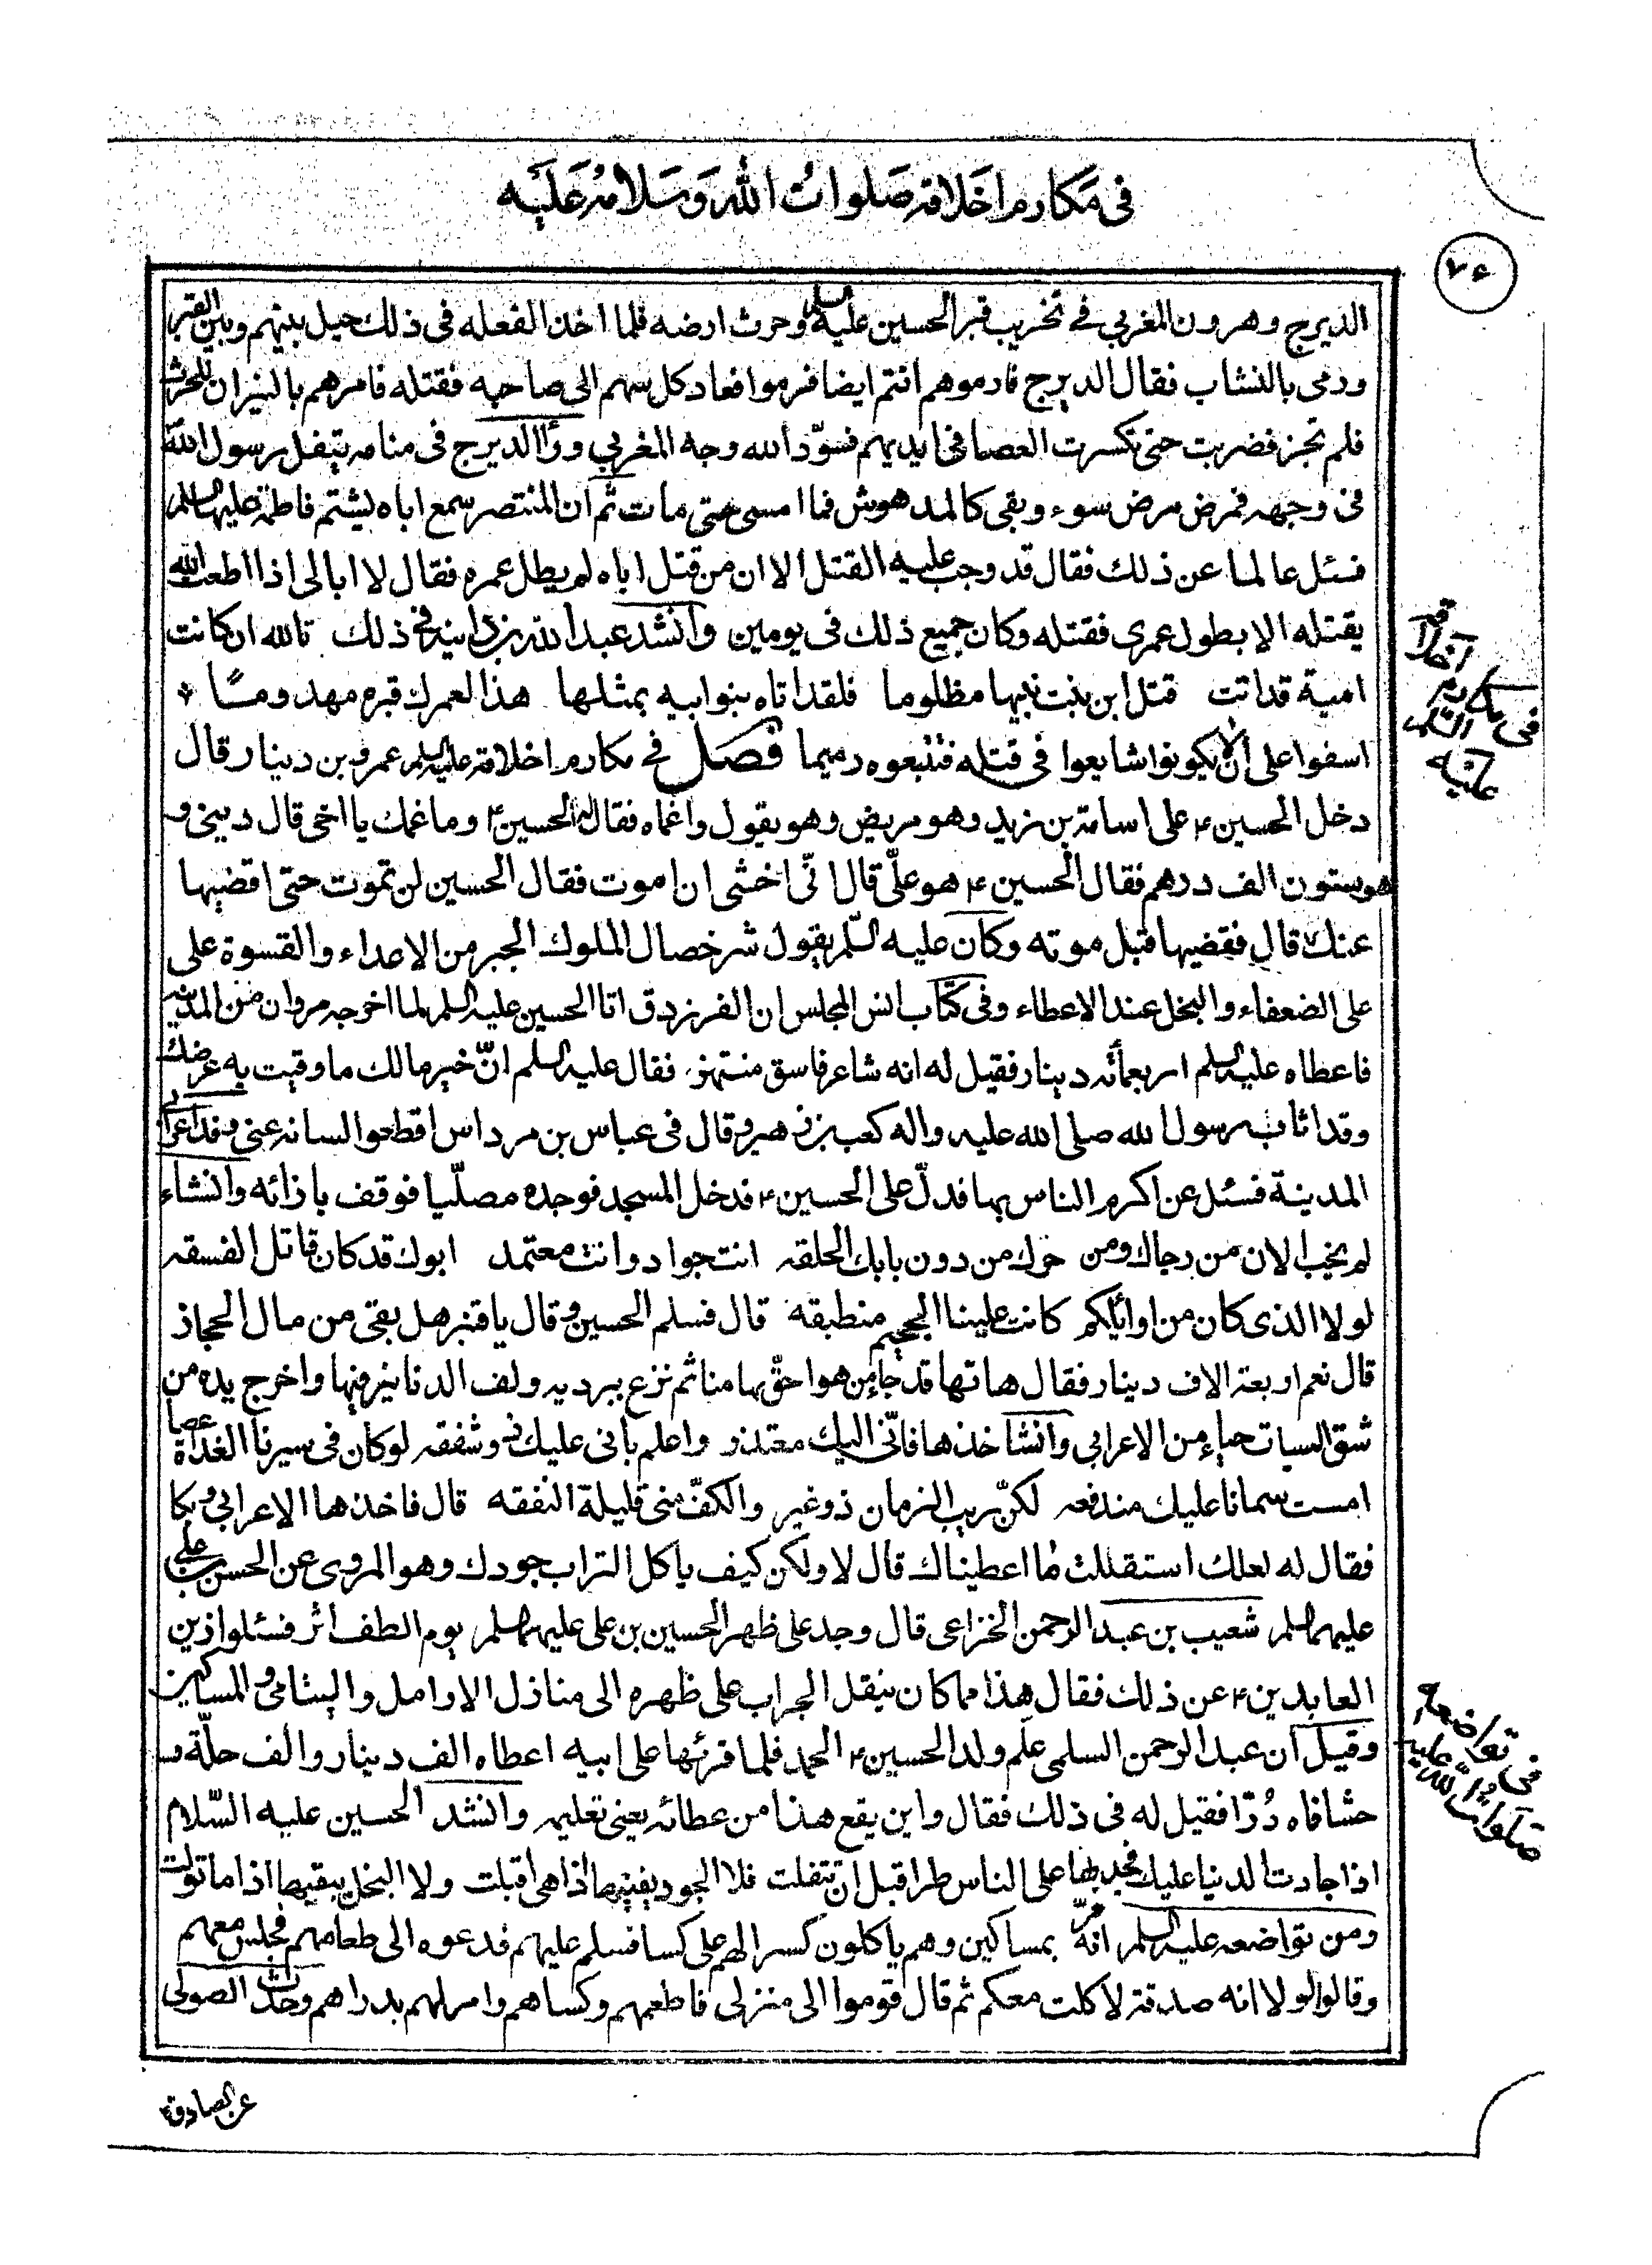 في مكارم اخلاقه صلوات الله وسلامه عليه
الديرج وهرون المغربي في تخريب قبر الحسين عليه السلم وحرث ارضه فلما اخذ الفعله في ذلك حيل بينهم وبين القبر
ورمى بالنشاب فقال الديرج فارموهم انتم ايضا فرموا فعاد كل سهم الى صاحبه فقتله فامرهم بالنيران للحرث
فلم تجز فضربت حتى تكسرت العصا في ايديهم فسوّد الله وجه المغربي ورأا الديرج في منامه يتفل رسول الله
في وجهه فمرض مرض سوء وبقى كالمدهوش فما امسى حتى مات ثم ان المنتصر سمع اباه يشتم فاطمة عليها السلم
فسئل عالما عن ذلك فقال قد وجب عليه القتل الا ان من قتل اباه لم يطل عمره فقال لا ابالى اذا اطعت الله
يقتله الا بطول عمرى فقتله وكان جميع ذلك في يومين وانشد عبد الله بن دانيه في ذلك تالله ان كانت
امية قد اتت قتل ابن بنت نبيها مظلوما فلقد اتاه بنو ابيه بمثلها هذا لعمرك قبره مهدوما
اسفوا على ان لا يكونوا شايعوا في قتله فتتبعوه رميما فصل في مكارم اخلاقه عليه السلم عمرو بن دينار قال
دخل الحسين ع على اسامة بن زيد وهو مريض وهو يقول واغماه فقال له الحسين ع وما غمك يا اخي قال ديني و
هو ستون الف درهم فقال الحسين ع هو عليّ قال انّى اخشى ان اموت فقال الحسين لن تموت حتى اقضيها
عنك قال فقضيها قبل موته وكان عليه السلم يقول شر خصال الملوك الجبر من الاعداء والقسوة على
على الضعفاء والبخل عند الاعطاء وفى كتاب انس المجلس ان الفرزدق اتا الحسين عليه السلم لما اخرجه مروان من المدينه
فاعطاه عليه السلم اربعمائه دينار فقيل له انه شاعر فاسق منتهز فقال عليه السلم انّ خير مالك ما وقيت به عرضك
وقد اثاب رسول الله صلى الله عليه واله كعب بن زهير وقال فى عباس بن مرداس اقطعوا لسانه عنى وفد اعرابى
المدينة فسئل عن اكرم الناس بها فدلّ على الحسين ع فدخل المسجد فوجده مصلّيا فوقف بازائه وانشاء
لم يخب الان من رجاك ومن حرك من دون بابك الحلقه انت جواد وانت معتمد ابوك قد كان قاتل الفسقه
لولا الذى كان من اوائلكم كانت علينا الجحيم منطبقه قال فسلم الحسين وقال يا قنبر هل بقى من مال الحجاز
قال نعم اربعة الاف دينار فقال هاتها قد جاء من هو احقّ بها منا ثم نزع ببرديه ولف الدنانير فيها واخرج يده من
شق الباب حياء من الاعرابي وانشا خذها فانّى اليك معتذر واعلم بانى عليك ذو شفقه لو كان فى سيرنا الغداة عصا
امست سمانا عليك مندفعه لكنّ ريب الزمان ذو غير والكفّ منى قليلة النفقه قال فاخذها الاعرابى وبكا
فقال له لعلك استقللت ما اعطيناك قال لا ولكن كيف ياكل التراب جودك وهو المروى عن الحسن بن على
عليهما السلم شعيب بن عبد الرحمن الخزاعى قال وجد على ظهر الحسين بن على عليهما السلم يوم الطف اثر فسئلوا زين
العابدين ع عن ذلك فقال هذا مما كان ينقل الجراب على ظهره الى منازل الارامل واليتامى والمساكين
وقيل ان عبد الرحمن السلمى علم ولد الحسين ع الحمد فلما قرئها على ابيه اعطاه الف دينار والف حلّة و
حشا فاه دُرّا فقيل له فى ذلك فقال واين يقع هذا من عطائه يعنى تعليمه وانشد الحسين عليه السّلام
اذا جادت الدنيا عليك فجد بها على الناس طرا قبل ان تتفلت فلا الجود يفنيها اذا هى اقبلت ولا البخل يبقيها اذا ما تولت
ومن تواضعه عليه السلم انه مرّ بمساكين وهم ياكلون كسرا لهم على كسا فسلم عليهم فدعوه الى طعامهم فجلس معهم
وقالوا لولا انه صدقة لاكلت معكم ثم قال قوموا الى منزلى فاطعمهم وكساهم وامر لهم بدراهم وحدث الصولى
عن الصادق ع
في مكارم اخلاقه عليه السلم
في تواضعه صلوات الله عليه